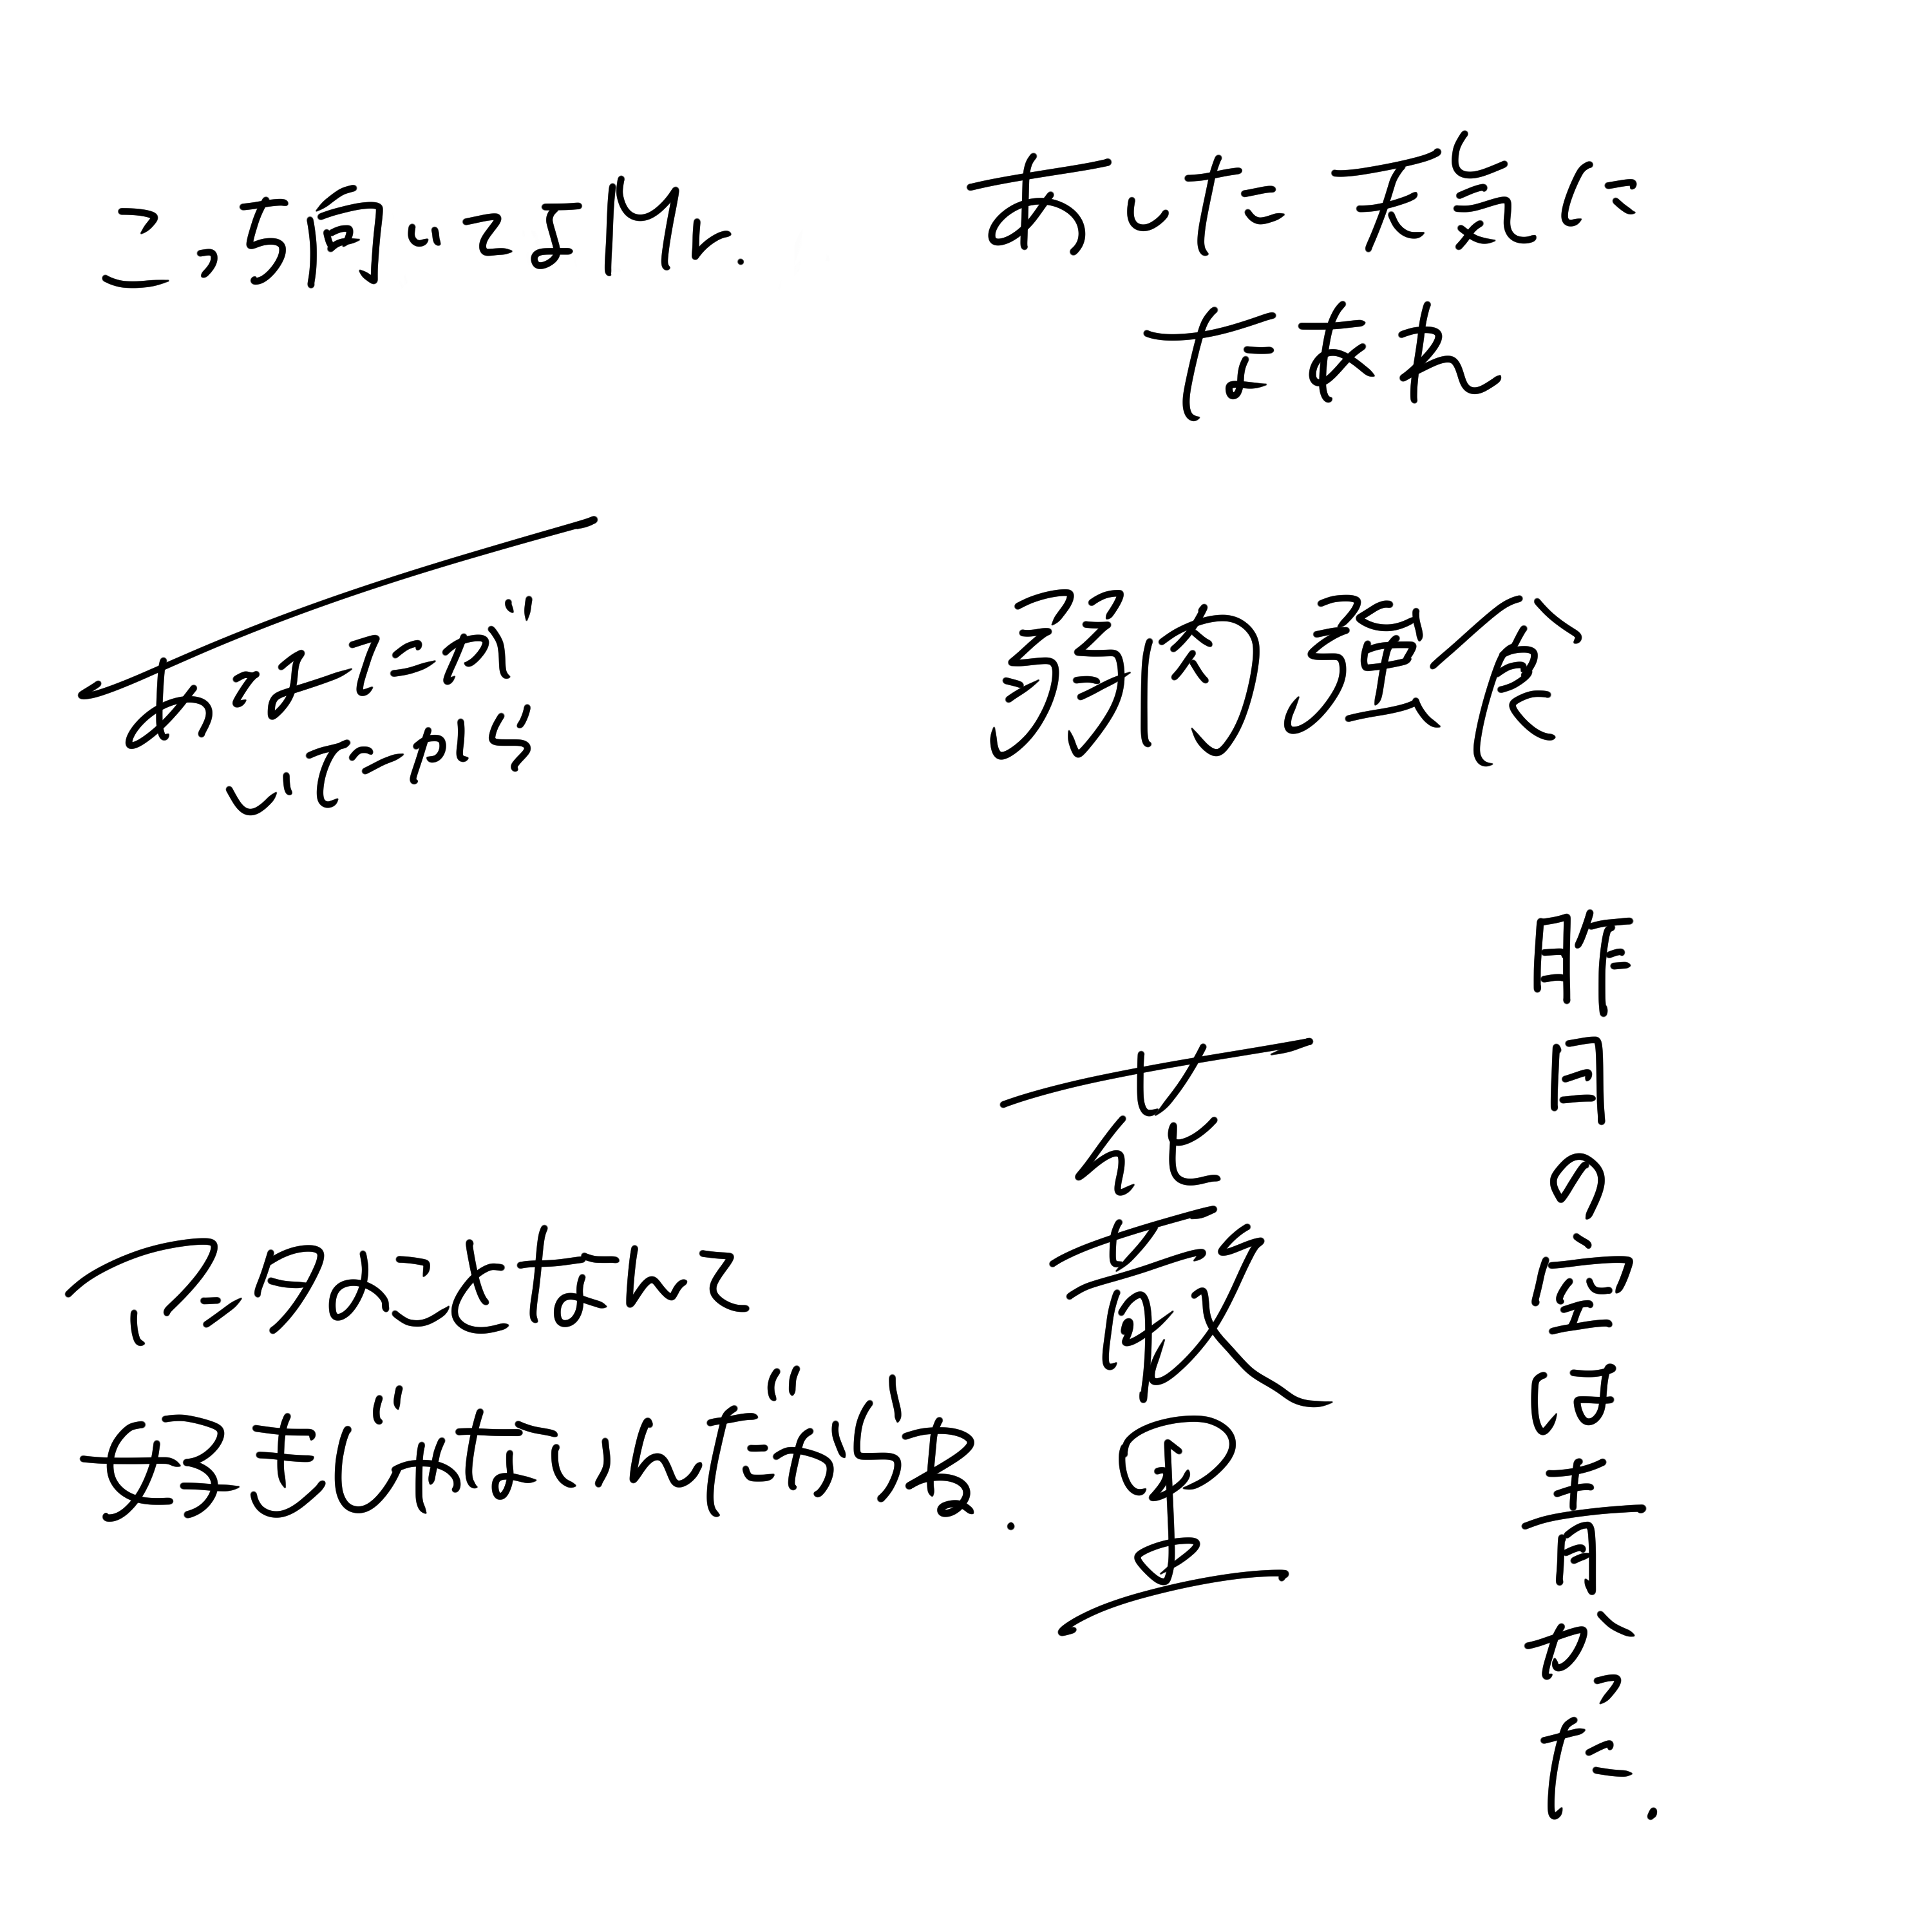 こっち向いてよMr.
あした天気に
なあれ
弱肉強食
昨日の空は青かった.
花
アンタのことなんて
好きじゃないんだからね.